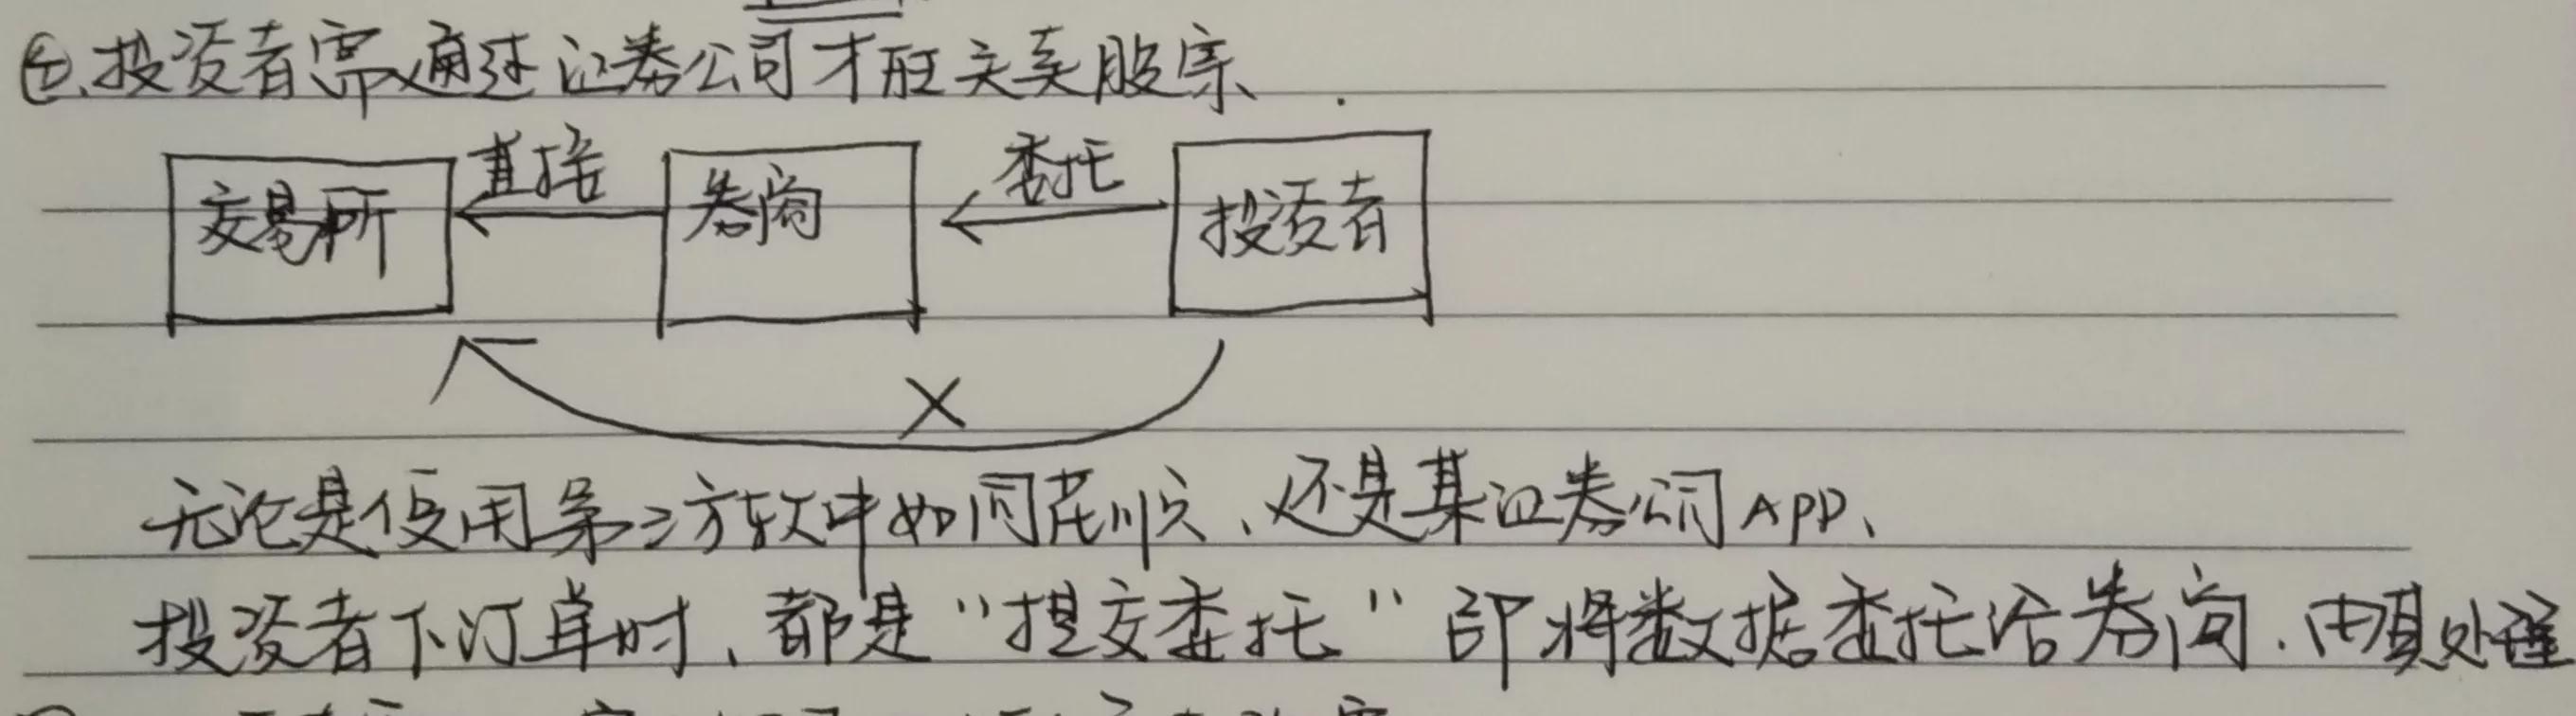 ④、投资者需通过证券公司才能买卖股票、
直接
委托
交易所
券商
投资者
无论是使用第三方软件如同花顺、还是某证券公司APP、
投资者下订单时、都是"提交委托"即将数据委托给券商.由其处理